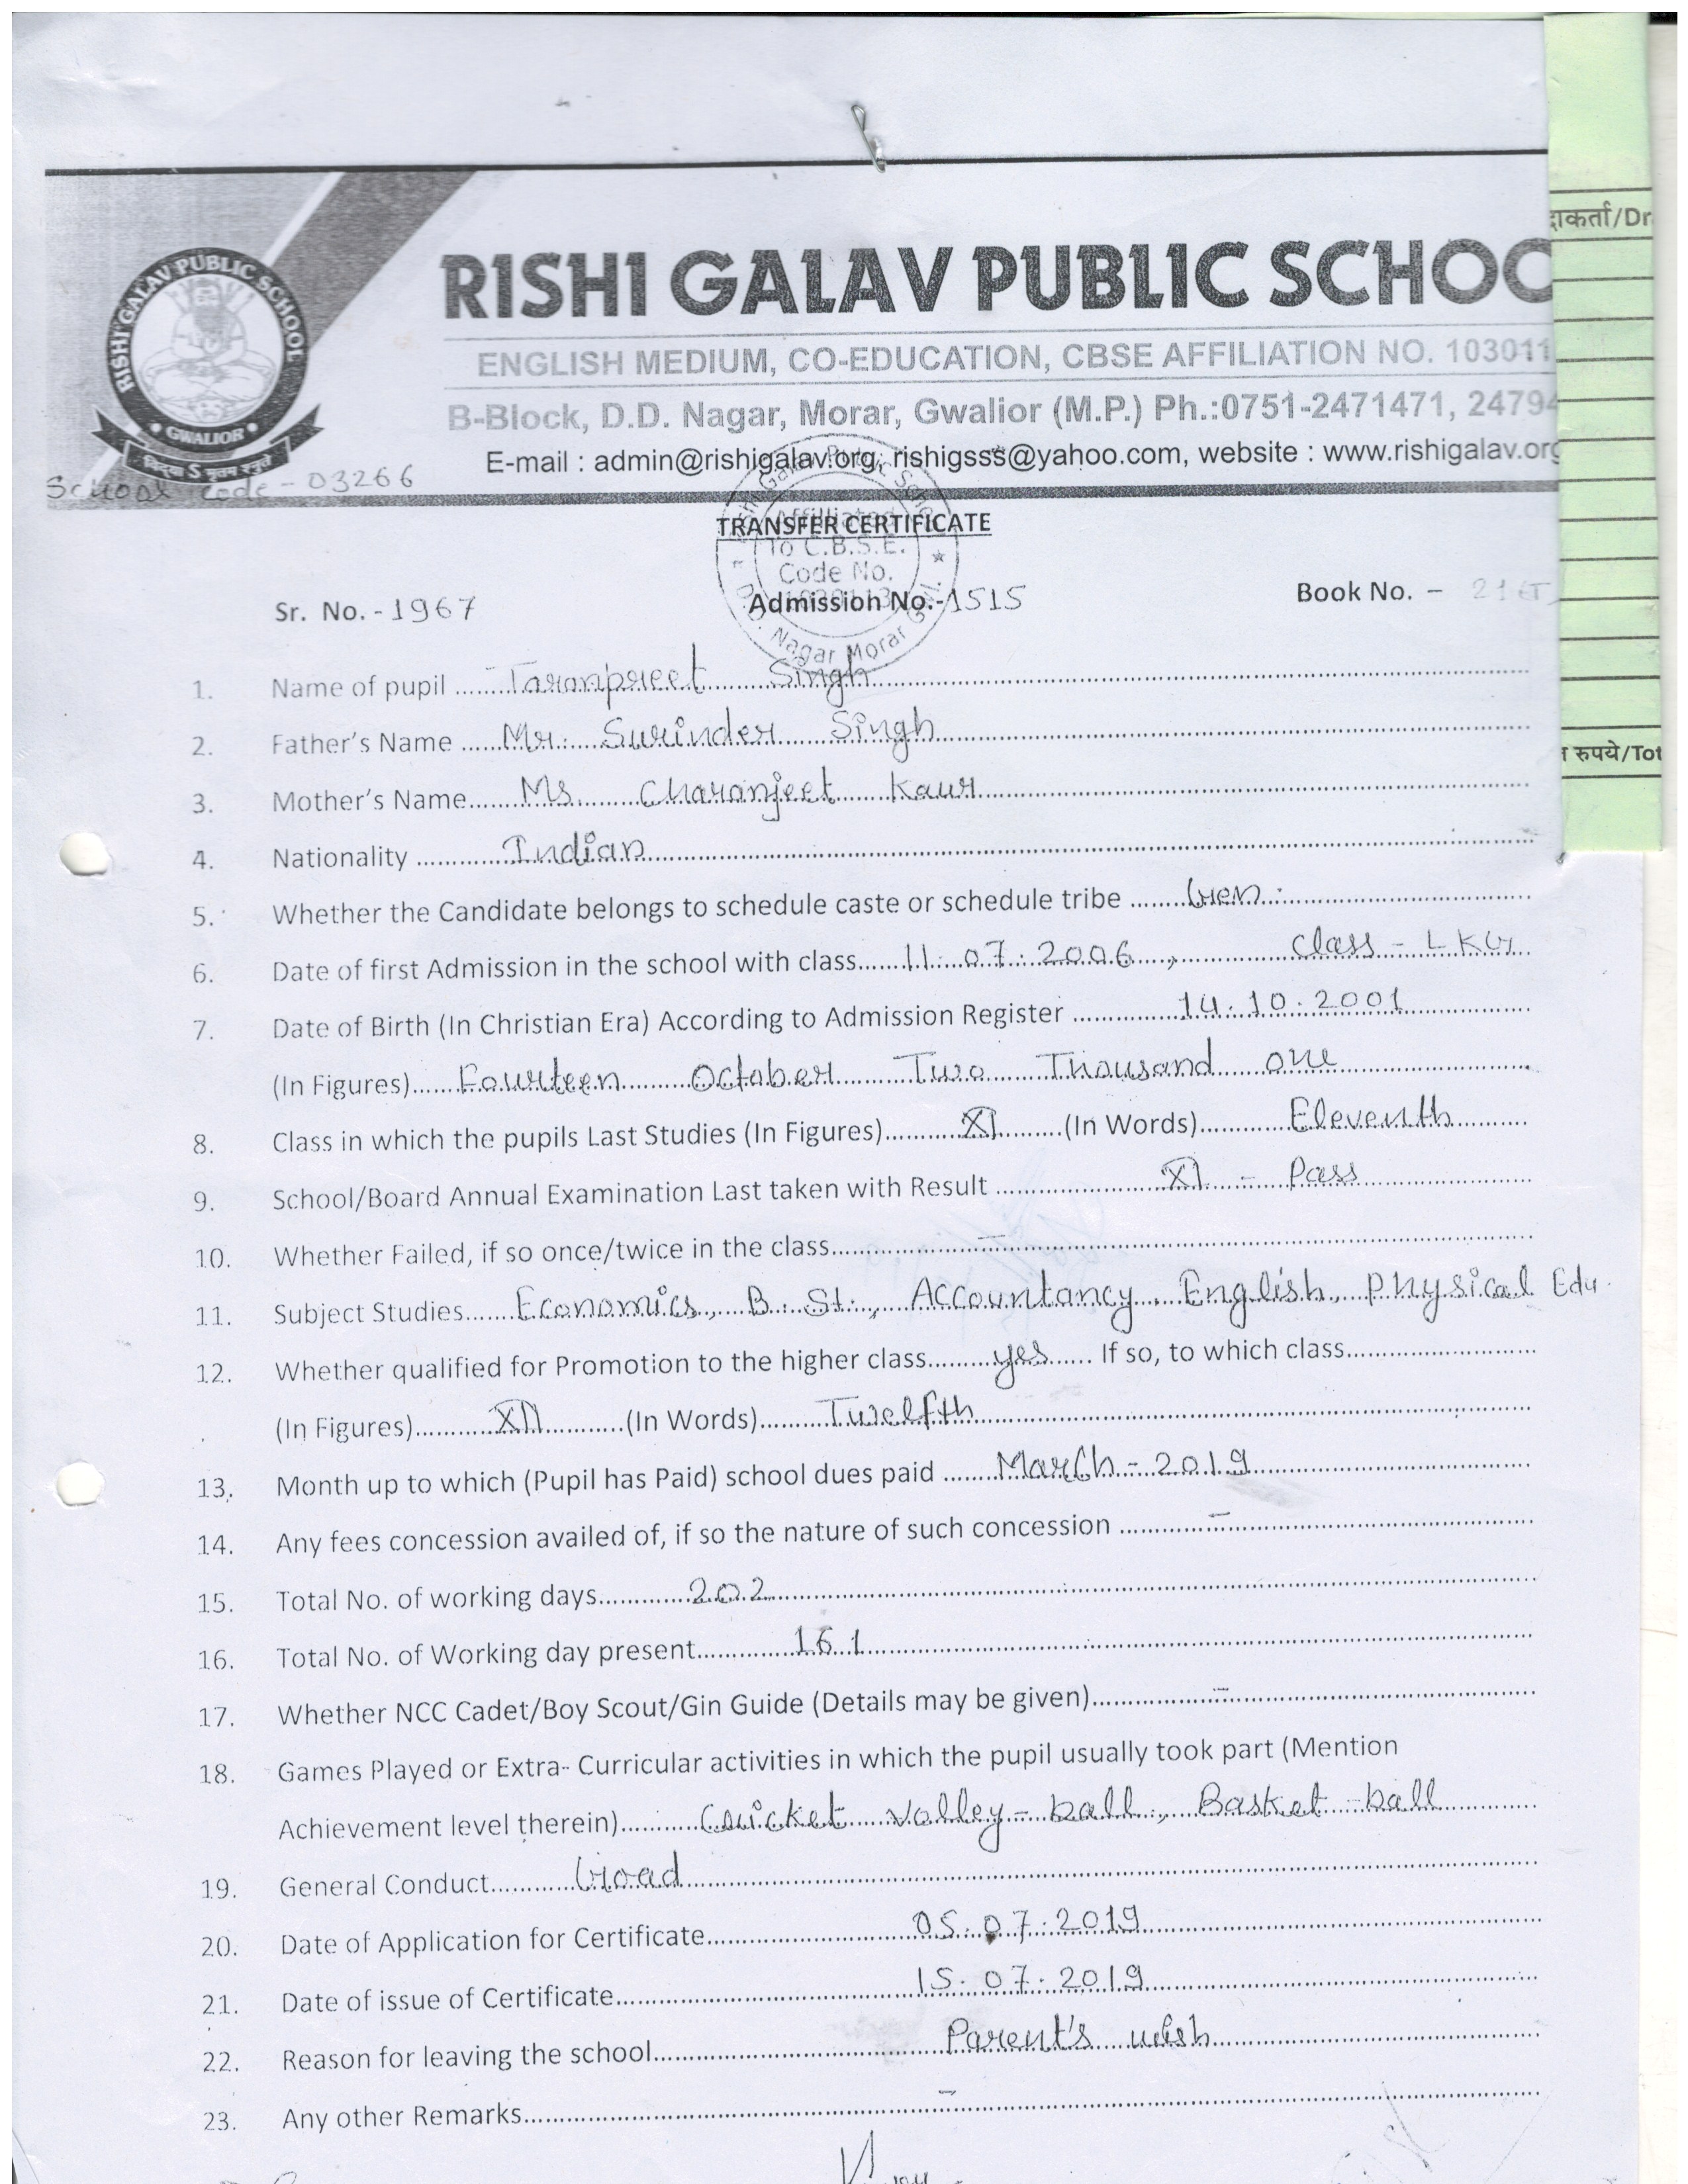 RISHI GALAV PUBLIC SCHOOL
GWALIOR
RISHI GALAV PUBLIC SCHOO
ENGLISH MEDIUM, CO-EDUCATION, CBSE AFFILIATION NO. 103011
B-Block, D.D. Nagar, Morar, Gwalior (M.P.) Ph.:0751-2471471, 24794
E-mail : admin@rishigalav.org, rishigsss@yahoo.com, website : www.rishigalav.org
School Code - 03266
TRANSFER CERTIFICATE
Affiliated
To C.B.S.E.
Code No.
Nagar Morar
Sr. No. - 1967 Admission No.- 1515 Book No. -
1. Name of pupil ...... Taranpreet Singh
2. Father's Name ...... Mr. Surinder Singh
3. Mother's Name ...... Ms. Charanjeet Kaur
4. Nationality ...... Indian
5. Whether the Candidate belongs to schedule caste or schedule tribe ...... Gen.
6. Date of first Admission in the school with class...... 11.07.2006, Class - LKG
7. Date of Birth (In Christian Era) According to Admission Register ...... 14.10.2001
(In Figures)...... Fourteen October Two Thousand one
8. Class in which the pupils Last Studies (In Figures)...... XI ......(In Words)...... Eleventh
9. School/Board Annual Examination Last taken with Result ...... XI - Pass
10. Whether Failed, if so once/twice in the class...... -
11. Subject Studies...... Economics, B. St., Accountancy, English, Physical Edu.
12. Whether qualified for Promotion to the higher class...... yes ...... If so, to which class......
(In Figures)...... XII ......(In Words)...... Twelfth
13. Month up to which (Pupil has Paid) school dues paid ...... March - 2019
14. Any fees concession availed of, if so the nature of such concession ...... -
15. Total No. of working days...... 202
16. Total No. of Working day present...... 161
17. Whether NCC Cadet/Boy Scout/Gin Guide (Details may be given)...... -
18. Games Played or Extra- Curricular activities in which the pupil usually took part (Mention
Achievement level therein)...... Cricket Volley-ball, Basket-ball
19. General Conduct...... Good
20. Date of Application for Certificate...... 05.07.2019
21. Date of issue of Certificate...... 15.07.2019
22. Reason for leaving the school...... Parent's wish
23. Any other Remarks...... -
ाकर्ता/Dr
रुपये/Tot